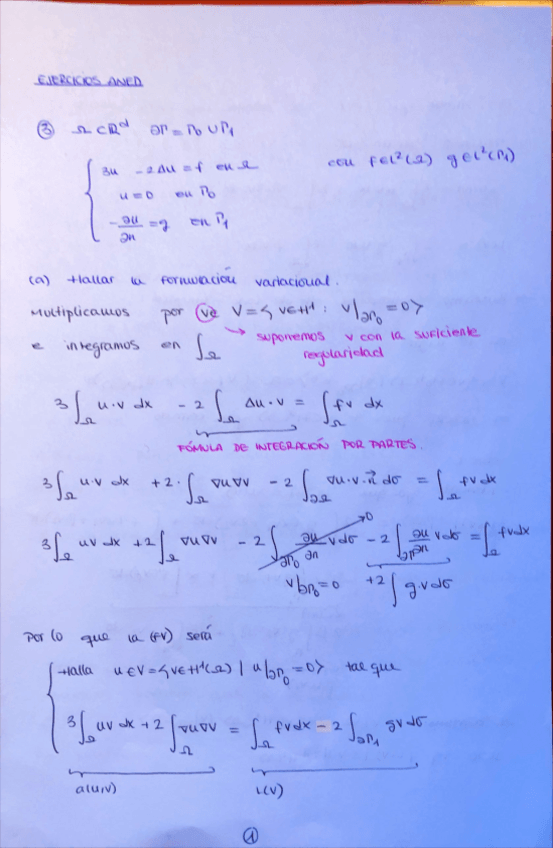 EJERCICIOS ANED
③ Ω ⊂ ℝᵈ ∂Γ = Γ₀ ∪ Γ₁
3u - 2Δu = f en Ω con f ∈ L²(Ω) g ∈ L²(Γ₁)
u = 0 en Γ₀
-∂u/∂n = g en Γ₁
(a) Hallar la formulación variacional.
Multiplicamos por v∈ V = { v∈H¹ : v|∂Γ₀ = 0 }
e integramos en ∫Ω → suponemos v con la suficiente
regularidad
3 ∫Ω u·v dx - 2 ∫Ω Δu·v = ∫Ω fv dx
FÓMULA DE INTEGRACIÓN POR PARTES.
3 ∫Ω u·v dx + 2· ∫Ω ∇u∇v - 2 ∫∂Ω ∇u·v·n⃗ dσ = ∫Ω fv dx
3 ∫Ω uv dx + 2 ∫Ω ∇u∇v - 2 ∫∂Γ₀ ∂u/∂n v dσ → 0 - 2 ∫∂Γ₁ ∂u/∂n v dσ = ∫Ω fv dx
v|∂Γ₀ = 0 +2 ∫ g·v dσ
Por lo que la (FV) será
Halla u∈V = { v∈H¹(Ω) | u|∂Γ₀ = 0 } tal que
3 ∫Ω uv dx + 2 ∫Ω ∇u∇v = ∫Ω fv dx - 2 ∫∂Γ₁ gv dσ
a(u,v) L(v)
①